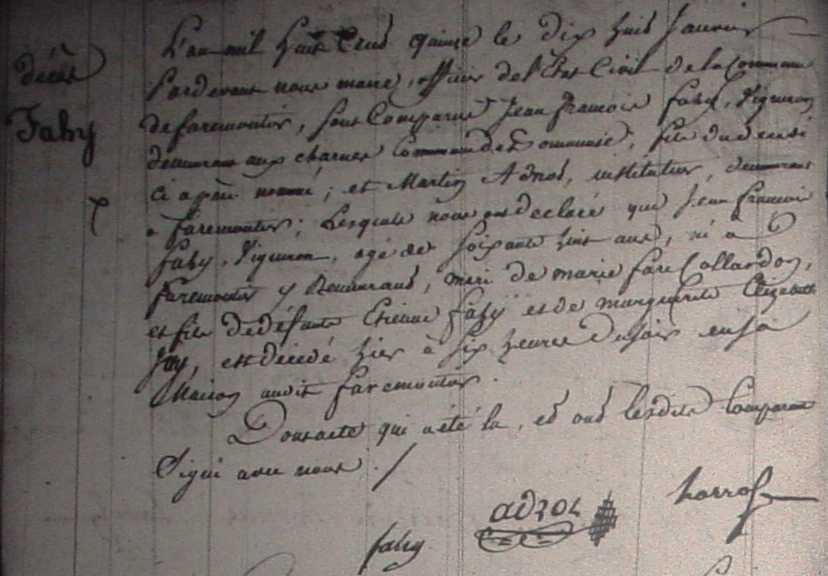 décès
Faby
L'an mil huit cens quinze le dix huit Janvier
Pardevant nous maire, officier de l'Etat Civil de la Commune
de faremontier, sont Comparus Jean francois faby, Vigneron
demeurant aux charnes Commune de Pommeuse, fils du decedé
ci après nommé ; et Martin Adnot, instituteur, demeurant
à faremontier ; Lesquels nous ont declaré que Jean francois
faby, Vigneron, agé de soixante huit ans, né à
faremontier y demeurant, mari de marie fare Collardon,
et fils de défunts Etienne faby et de marguerite Elizabeth
, est décédé hier à six heures du soir en sa
Maison audit faremontier.
Dont acte qui a été lu, et ont lesdits Comparans
Signé avec nous ./
faby